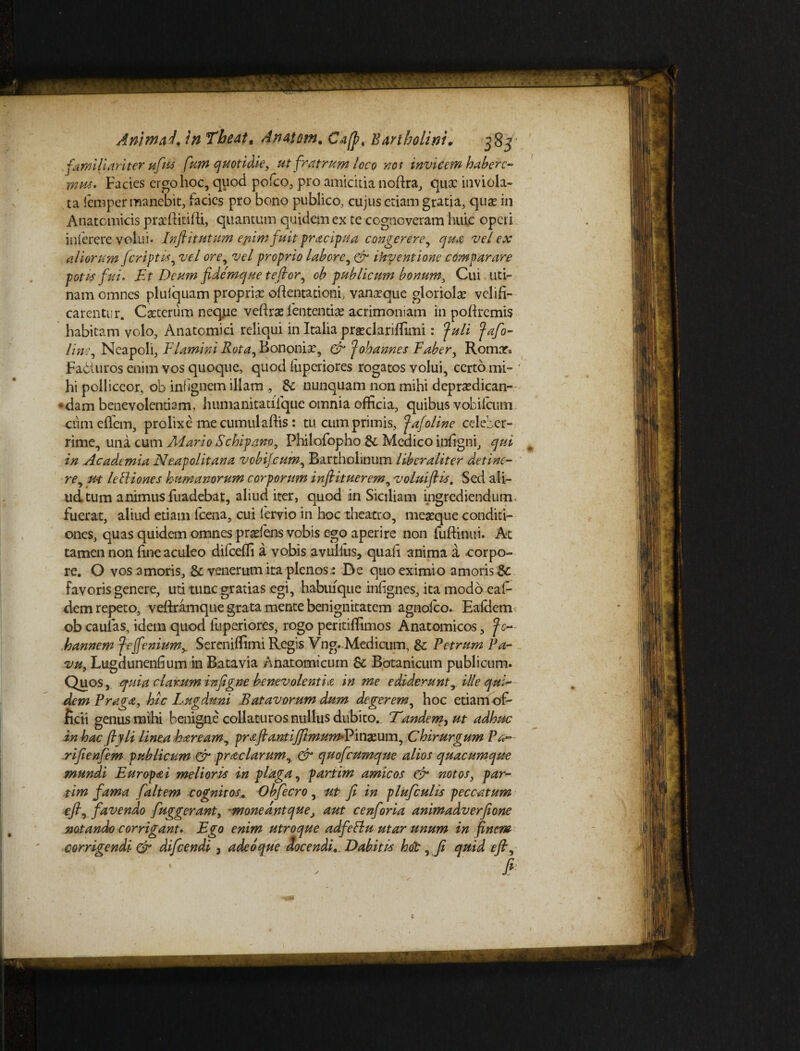 Animad. in Theat. Anatom. Casp. Bartholini. 383
familiariter usus sum quotidie, ut fratrum loco nos invicem habere-
mus. Facies ergo hoc, quod posco, pro amicitia nostra, quæ inviola-
ta semper manebit, facies pro bono publico, cujus etiam gratia, quæ in
Anatomicis præstitisti, quantum quidem ex te cognoveram huic operi
inserere volui. Institutum enim fuit præcipua congerere, quæ vel ex
aliorum scriptis, vel ore, vel proprio labore, & inventione comparare
potis fui. Et Deum fidemque testor, ob publicum bonum, Cui uti-
nam omnes plusquam propriæ ostentationi, vanæque gloriolæ velifi-
carentur. Cæterum neque vestræ sententiæ acrimoniam in postremis
habitam volo, Anatomici reliqui in Italia præclarissimi: Juli Jaso-
line, Neapoli, Flamini Rota, Bononiæ, & Johannes Faber, Romæ.
Facturos enim vos quoque, quod superiores rogatos volui, certò mi-
hi polliceor, ob insignem illam, & nunquam non mihi deprædican-
dam benevolentiam, humanitatisque omnia officia, quibus vobiscum
cùm essem, prolixè me cumulastis: tu cum primis, Jasoline celeber-
rime, unà cum Mario Schipano, Philosopho & Medico insigni, qui
in Academia Neapolitana vobiscum, Bartholinum liberaliter detine-
re, ut lectiones humanorum corporum instituerem, voluistis. Sed ali-
ud tum animus suadebat, aliud iter, quod in Siciliam ingrediendum
fuerat, aliud etiam scena, cui servio in hoc theatro, meæque conditi-
ones, quas quidem omnes præsens vobis ego aperire non sustinui. At
tamen non sine aculeo discessi à vobis avulsus, quasi anima à corpo-
re. O vos amoris, & venerum ita plenos: De quo eximio amoris &
favoris genere, uti tunc gratias egi, habuique insignes, ita modò eas-
dem repeto, vestrámque grata mente benignitatem agnosco. Easdem
ob causas, idem quod superiores, rogo peritissimos Anatomicos, Jo-
hannem Jessenium, Serenissimi Regis Vng. Medicum, & Petrum Pa-
vu, Lugdunensium in Batavia Anatomicum & Botanicum publicum.
Quos, quia clarum insigne benevolentiæ in me ediderunt, ille qui-
dem Pragæ, hic Lugduni Batavorum dum degerem, hoc etiam of-
ficii genus mihi benignè collaturos nullus dubito. Tandem, ut adhuc
in hac styli linea hæream, præstantissimum Pinæum, Chirurgum Pa-
risiensem publicum & præclarum, & quoscumque alios quacumque
mundi Europæi melioris in plaga, partim amicos & notos, par-
tim fama saltem cognitos. Obsecro, ut si in plusculis peccatum
est, favendo suggerant, moneántque, aut censoria animadversione
notando corrigant. Ego enim utroque adfectu utar unum in finem
corrigendi & discendi, adeòque docendi. Dabitis hoc, si quid est,
si